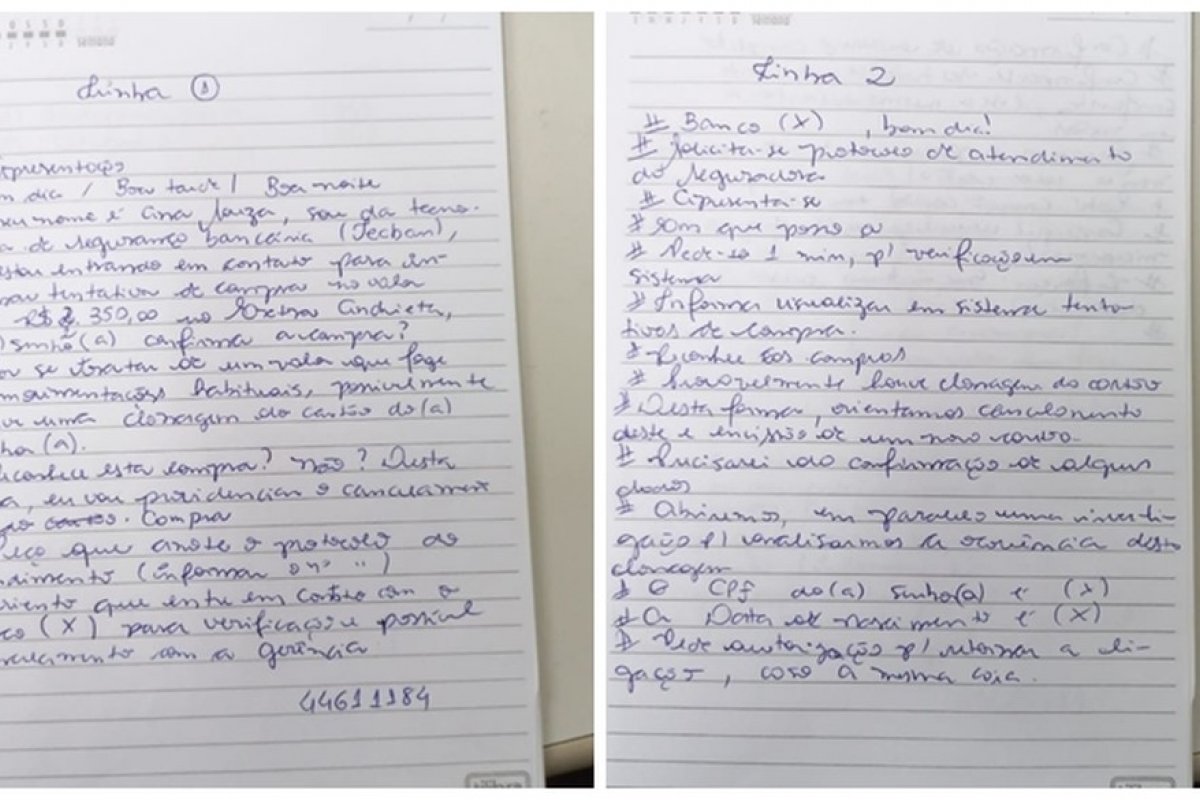 Linha ①
apresentação
m dia / Boa tarde / Boa noite
eu nome é Ana Souza, sou da tecno-
a de segurança bancária (Tecban),
estou entrando em contato para in-
mar tentativa de compra no valor
R$ 2.350,00 no Extra Anchieta,
sinhô(a) confirma a compra?
or se tratar de um valor que foge
movimentações habituais, possivelmente
ve uma clonagem do cartão do(a)
nhor(a).
econhece esta compra? Não? Desta
a, eu vou providenciar o cancelament
compra
Peço que anote o protocolo do
ndimento (informar o nº ")
oriento que entre em contato com o
co (X) para verificação e possível
ressarcimento com a gerência
44611184
Linha 2
# Banco (X) , bom dia!
# Solicita-se protocolo de atendimento
da seguradora
# Apresenta-se
# Com que posso a
# Pede-se 1 min, p/ verificação em
sistema
# Informa visualizar em sistema tenta-
tivas de compra.
# Reconhece Eas compras
# Provavelmente houve clonagem do cartão
# Desta forma, orientamos cancelamento
deste e emissão de um novo cartão.
# Precisarei da confirmação de alguns
dados
# Abriremos, em paralelo uma investi-
gação p/ analisarmos a ocorrência desta
clonagem
# O CPF do(a) sinhô(a) é (X)
# A Data de nascimento é (X)
# Pede autorização p/ retornar a li-
gação, caso a mesma caia.